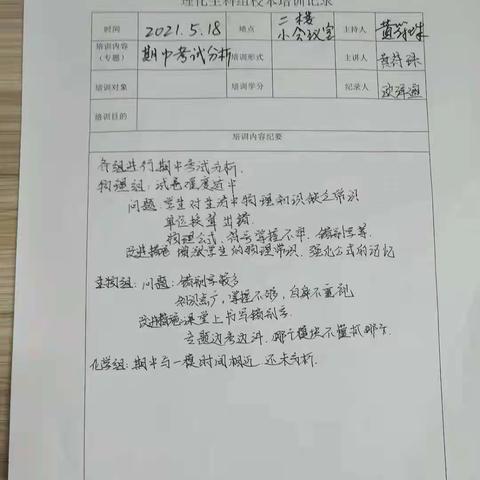 理化生科组校本培训记录
时间 2021.5.18 地点 二楼小会议室 主持人
培训内容(专题) 期中考试分析 培训形式 主讲人
培训对象 培训学分 纪录人
培训目的
培训内容纪要
各组进行期中考试分析.
物理组:试卷难度适中
问题:学生对生活中物理知识缺乏常识
单位换算出错
物理公式、符号掌握不牢、错别字等.
改进措施 学生的物理常识、强化公式的记忆
生物组:问题:错别字较多
知识点广,掌握不够,自身不重视
改进措施:课堂上书写错别字
专题边考边讲.哪个模块不懂抓哪个.
化学组:期中与一模时间相近.还未分析.